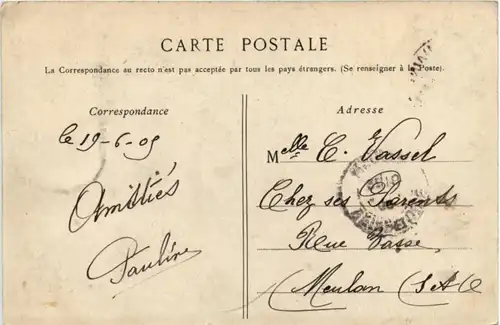 CARTE POSTALE
La Correspondance au recto n'est pas acceptée par tous les pays étrangers. (Se renseigner à la Poste).
Correspondance
le 19-6-05
Amitiés
Pauline
Adresse
Melle C. Vassel
Chez ses Parents
Rue Vasse
Meulan (S & O